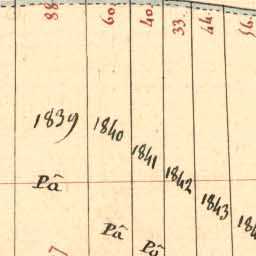 88
60.
40.
33.
44.
56.
1839
1840
1841
1842
1843
Pâ
Pâ
Pâ
7